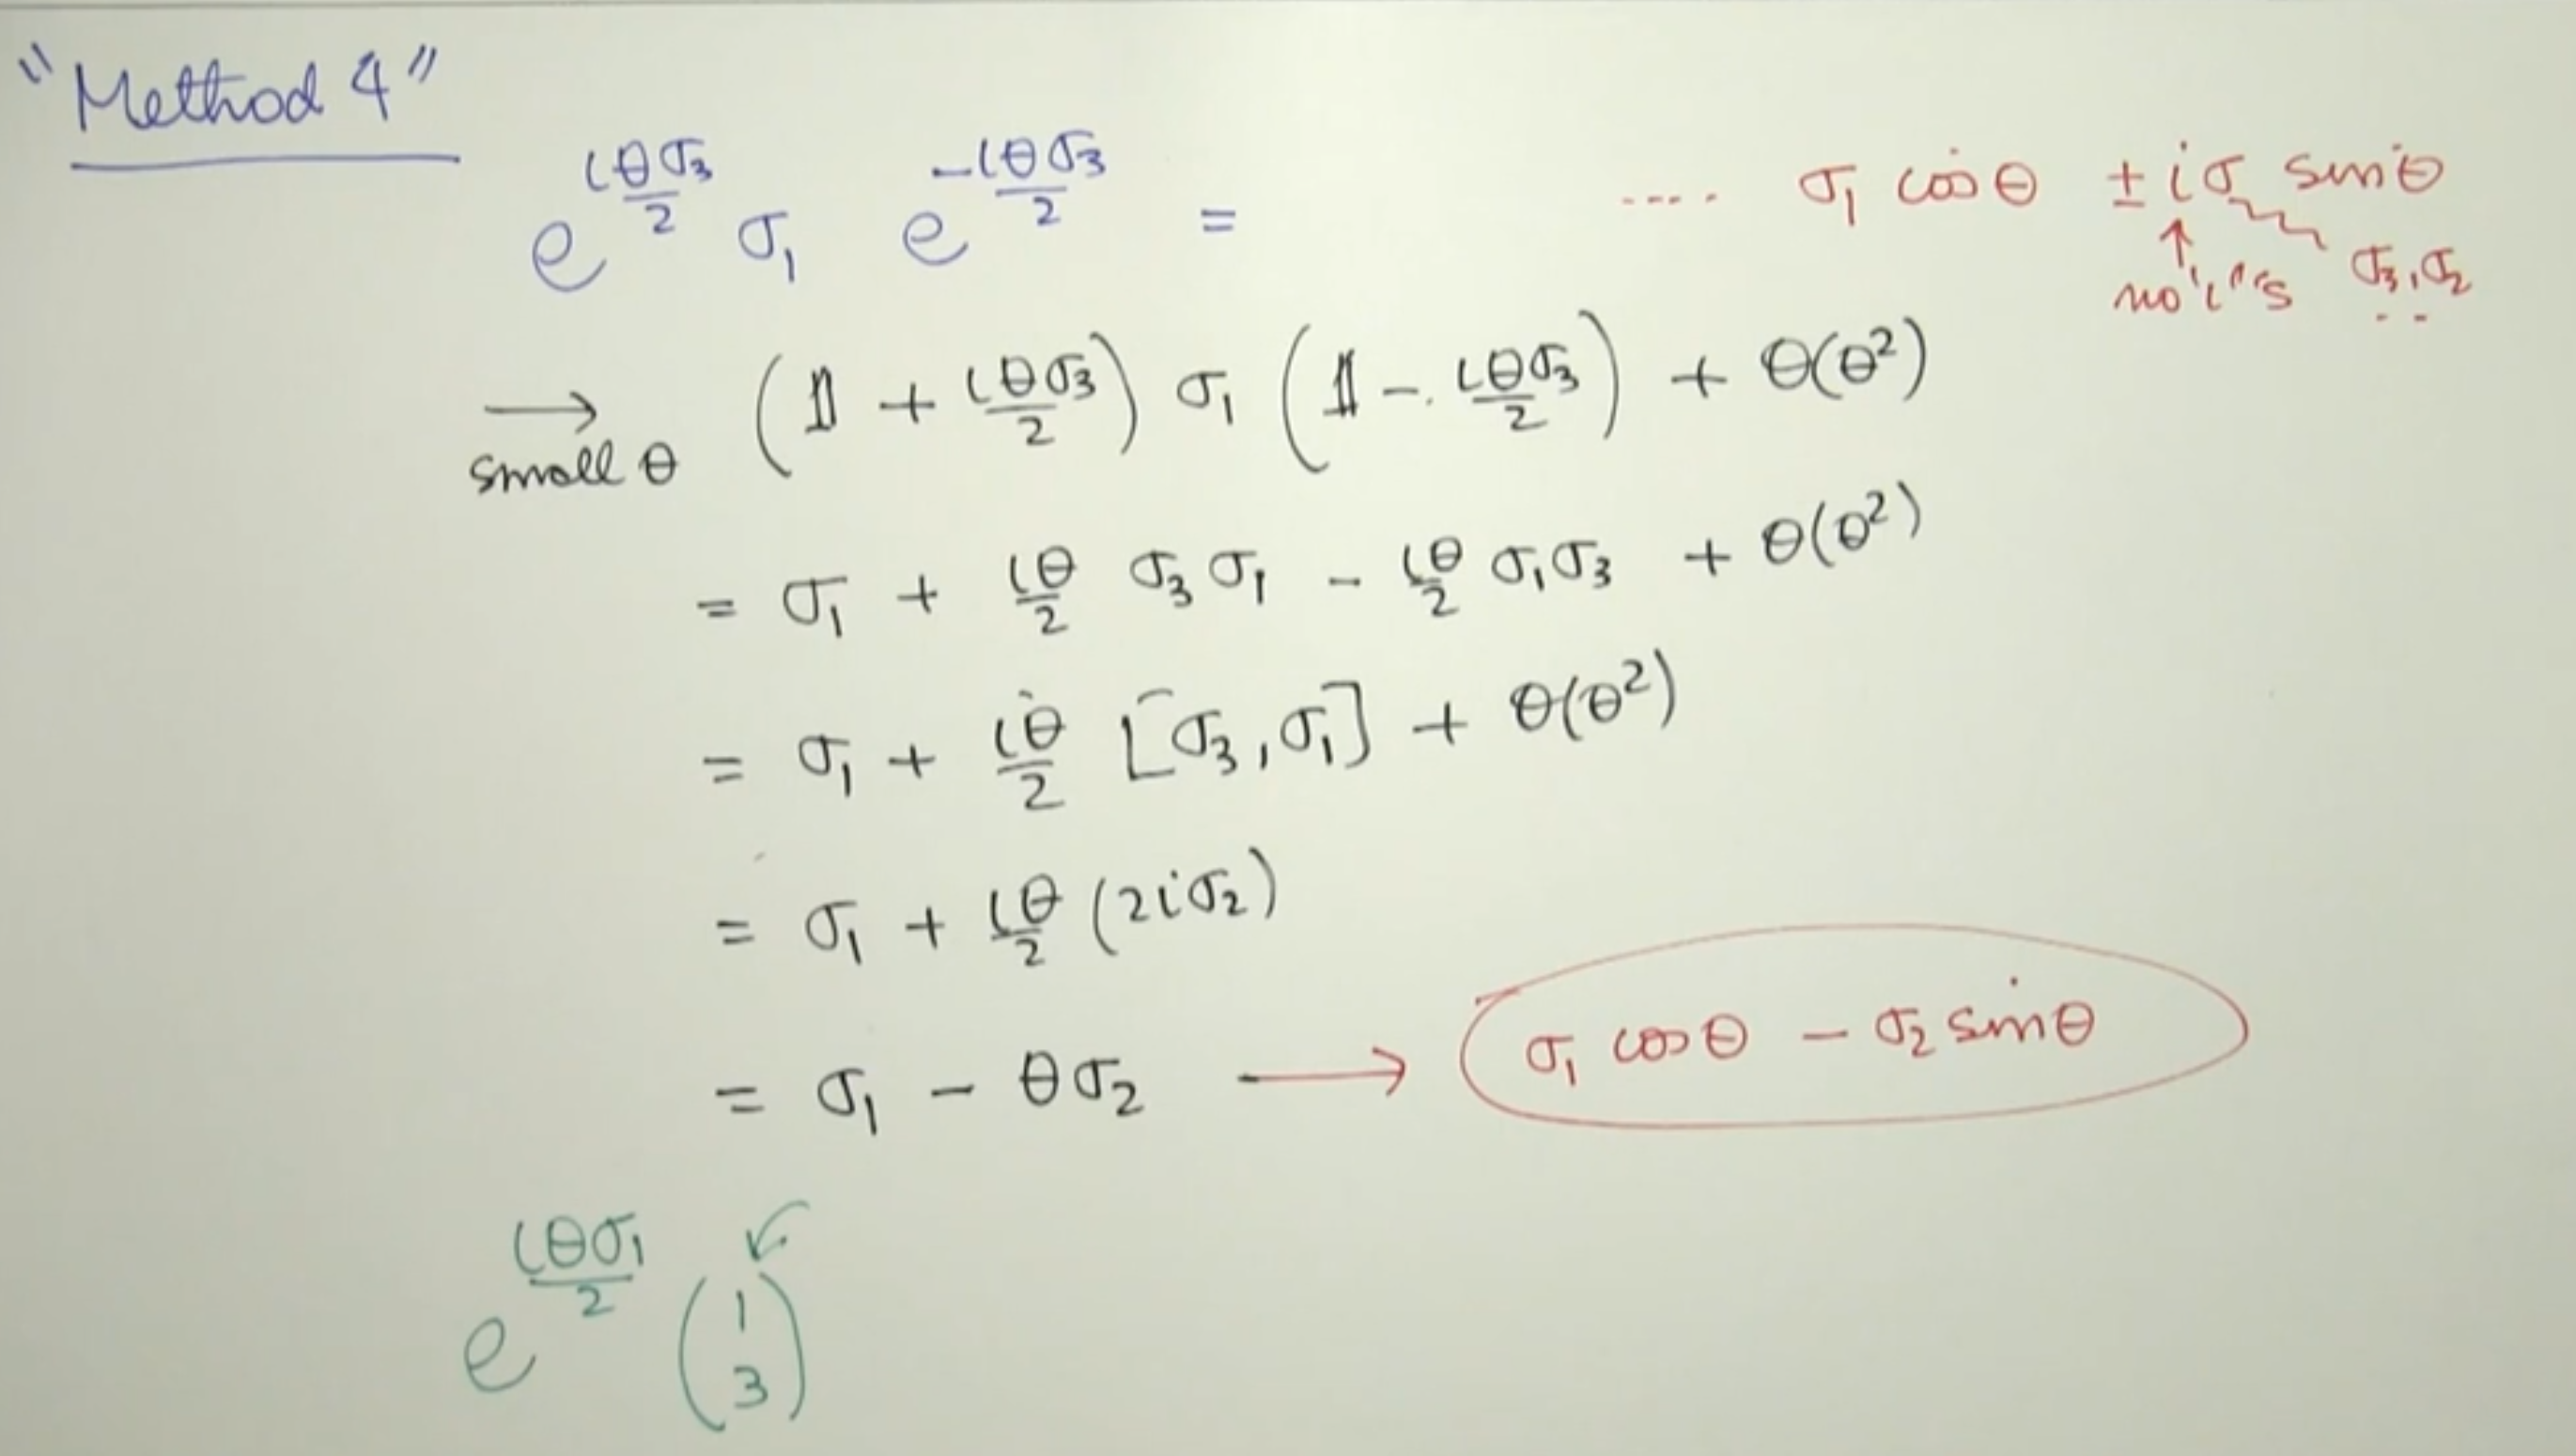 "Method 4"
e^{iθσ₃/2} σ₁ e^{-iθσ₃/2} = .... σ₁ cosθ ± iσ sinθ
↑ no "i"s σ₃,σ₂ ..
→ small θ (𝟙 + iθσ₃/2) σ₁ (𝟙 - iθσ₃/2) + O(θ²)
= σ₁ + iθ/2 σ₃σ₁ - iθ/2 σ₁σ₃ + O(θ²)
= σ₁ + iθ/2 [σ₃,σ₁] + O(θ²)
= σ₁ + iθ/2 (2iσ₂)
= σ₁ - θσ₂ → σ₁ cosθ - σ₂ sinθ
e^{iθσ₁/2} (1
3)